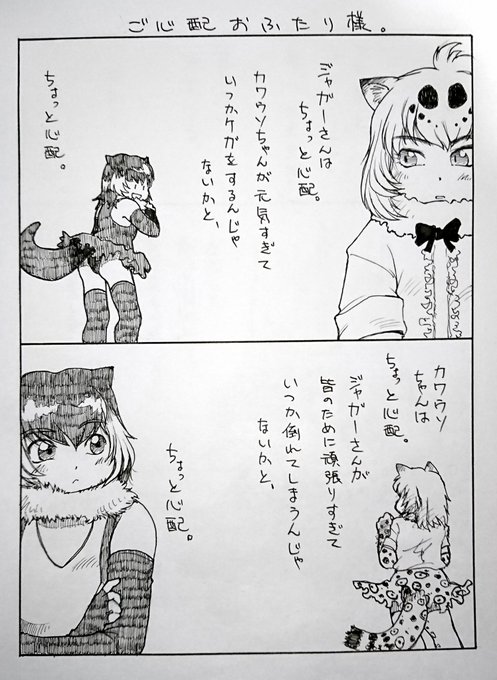 ご心配おふたり様。
ジャガーさんは
ちょっと心配。
カワウソちゃんが元気すぎて
いつかケガをするんじゃ
ないかと、
ちょっと心配。
カワウソ
ちゃんは
ちょっと心配。
ジャガーさんが
皆のために頑張りすぎて
いつか倒れてしまうんじゃ
ないかと、
ちょっと心配。